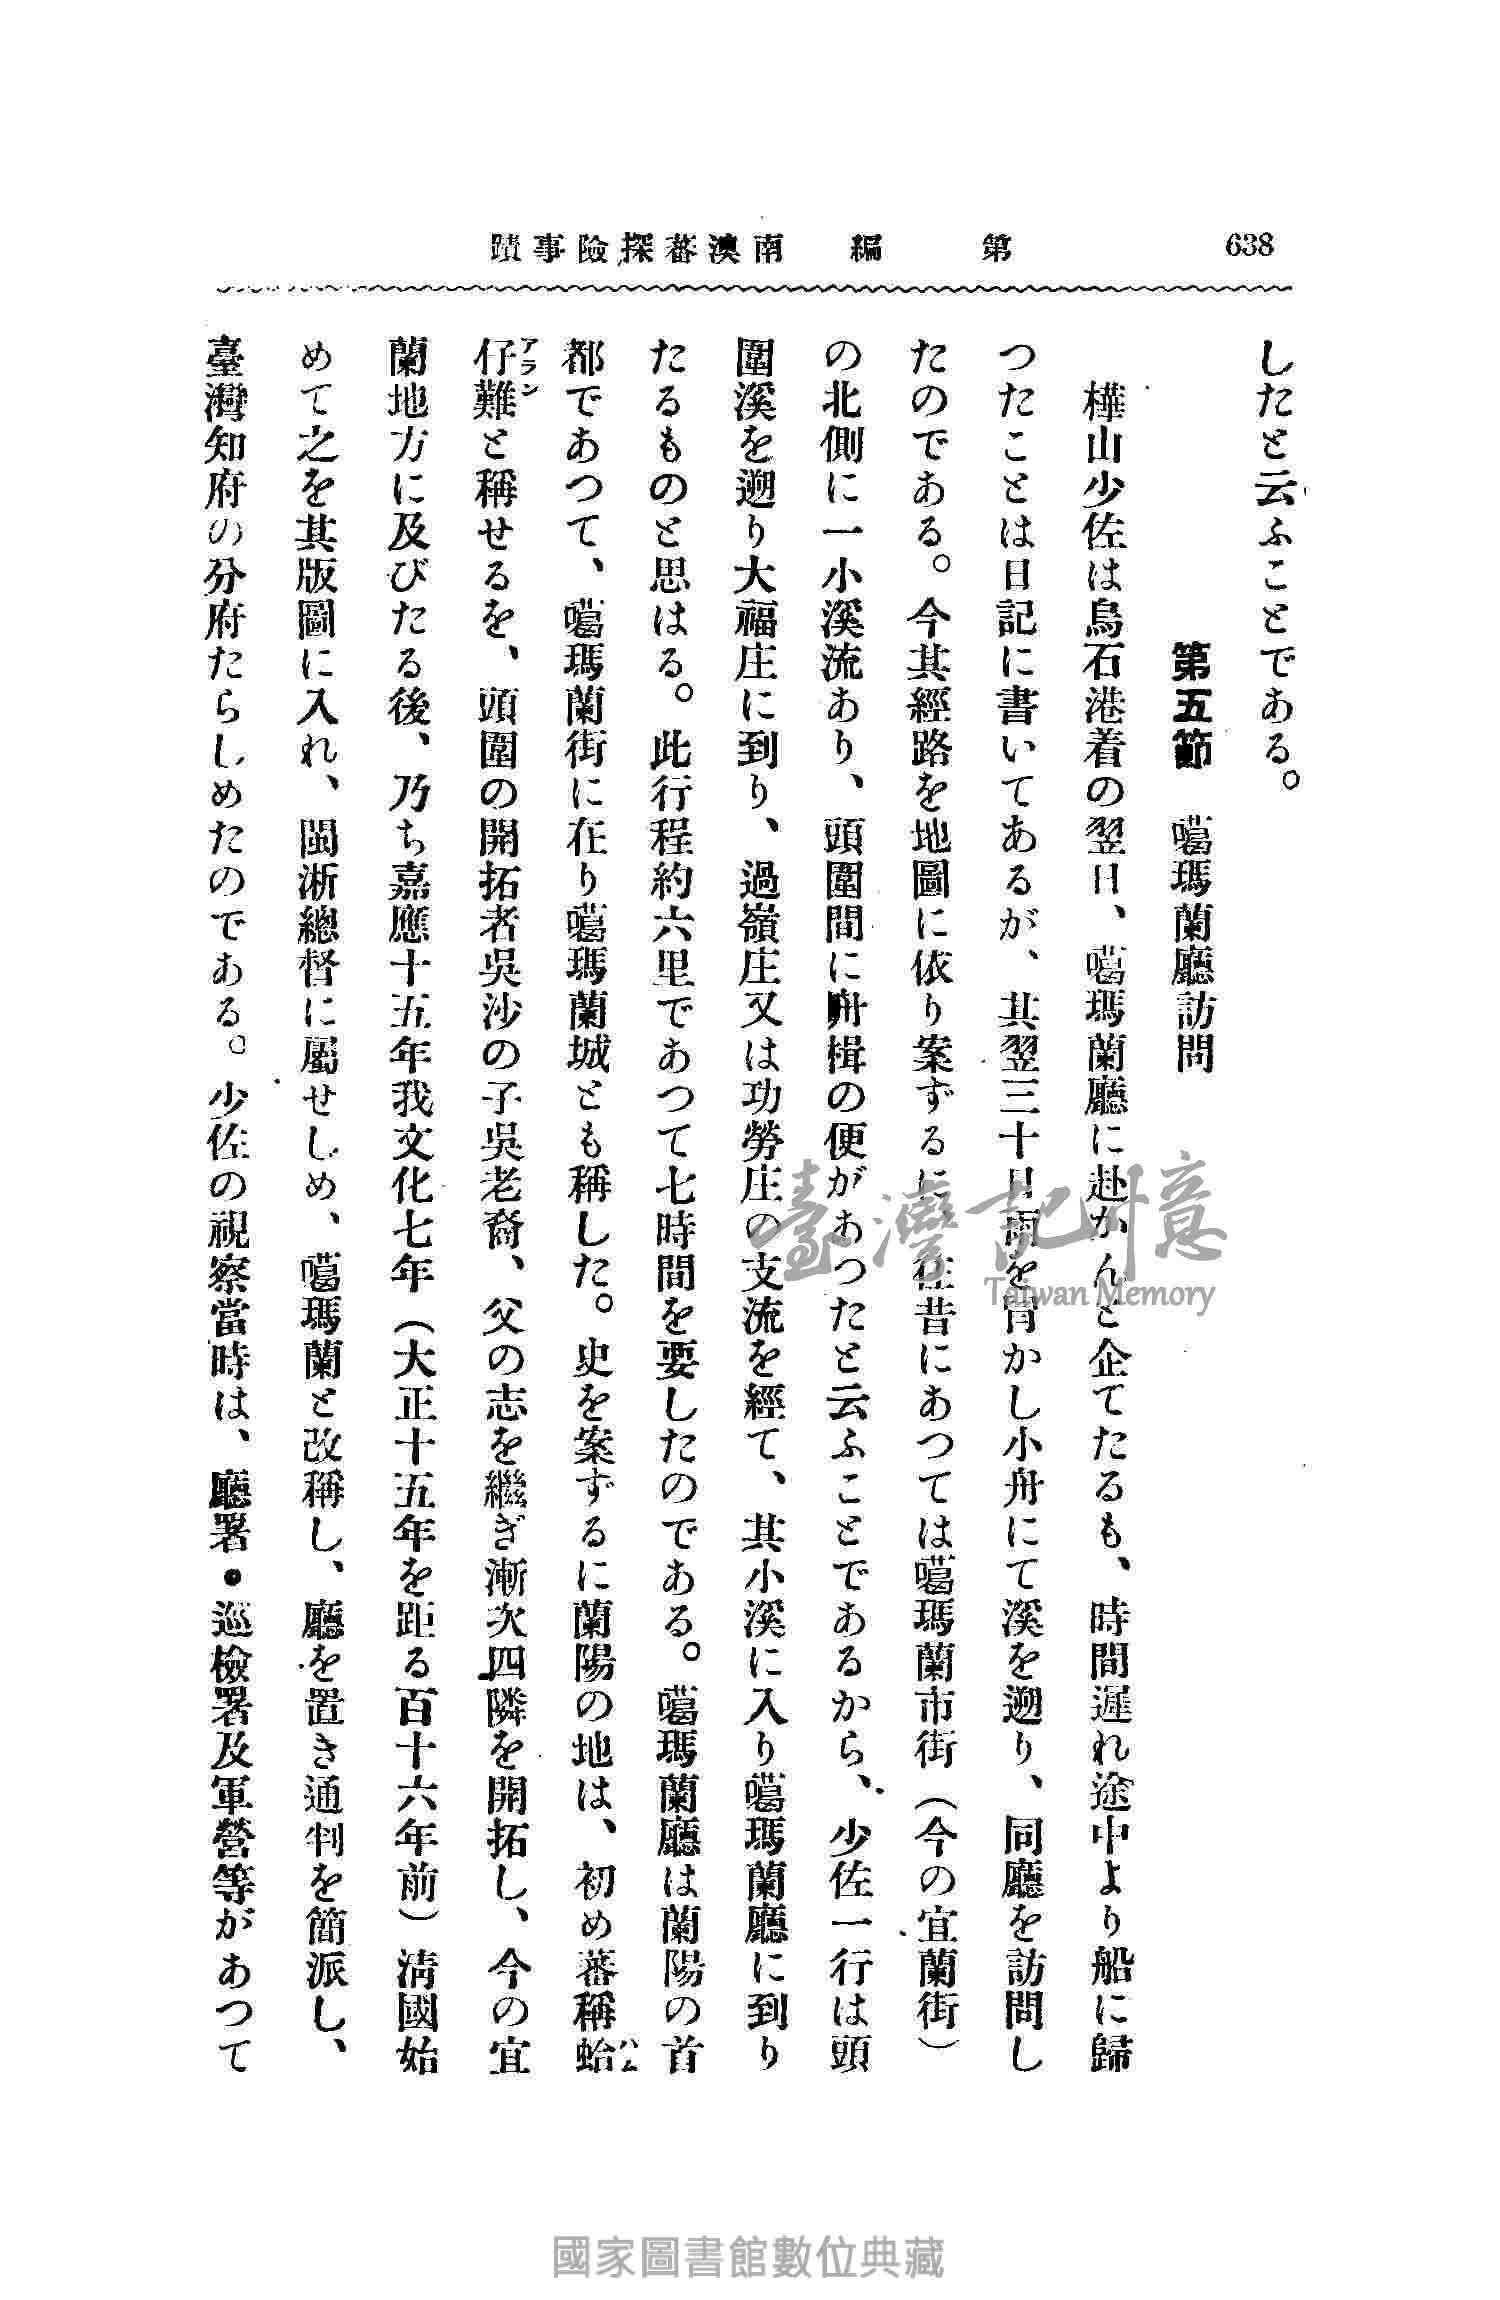 638
第 編 南澳蕃探險事蹟
したと云ふことである。
第五節 噶瑪蘭廳訪問
樺山少佐は烏石港着の翌日、噶瑪蘭廳に赴かんと企てたるも、時間遲れ途中より船に歸
つたことは日記に書いてあるが、其翌三十日雨を冒かし小舟にて溪を遡り、同廳を訪問し
たのである。今其經路を地圖に依り案ずるに往昔にあつては噶瑪蘭市街（今の宜蘭街）
の北側に一小溪流あり、頭圍間に舟楫の便があつたと云ふことであるから、少佐一行は頭
圍溪を遡り大福庄に到り、過嶺庄又は功勞庄の支流を經て、其小溪に入り噶瑪蘭廳に到り
たるものと思はる。此行程約六里であつて七時間を要したのである。噶瑪蘭廳は蘭陽の首
都であつて、噶瑪蘭街に在り噶瑪蘭城とも稱した。史を案ずるに蘭陽の地は、初め蕃稱蛤
ハム
仔難と稱せるを、頭圍の開拓者吳沙の子吳老裔、父の志を繼ぎ漸次四隣を開拓し、今の宜
アラン
蘭地方に及びたる後、乃ち嘉應十五年我文化七年（大正十五年を距る百十六年前）淸國始
めて之を其版圖に入れ、閩浙總督に屬せしめ、噶瑪蘭と改稱し、廳を置き通判を簡派し、
臺灣知府の分府たらしめたのである。少佐の視察當時は、廳署・巡檢署及軍營等があつて
臺灣記憶
Taiwan Memory
國家圖書館數位典藏